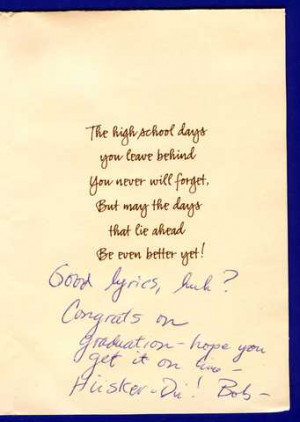 The high school days
you leave behind
You never will forget,
But may the days
that lie ahead
Be even better yet!
Good lyrics, huh?
Congrats on
graduation - hope you
get it on live -
Hüsker-Dü! Bob-